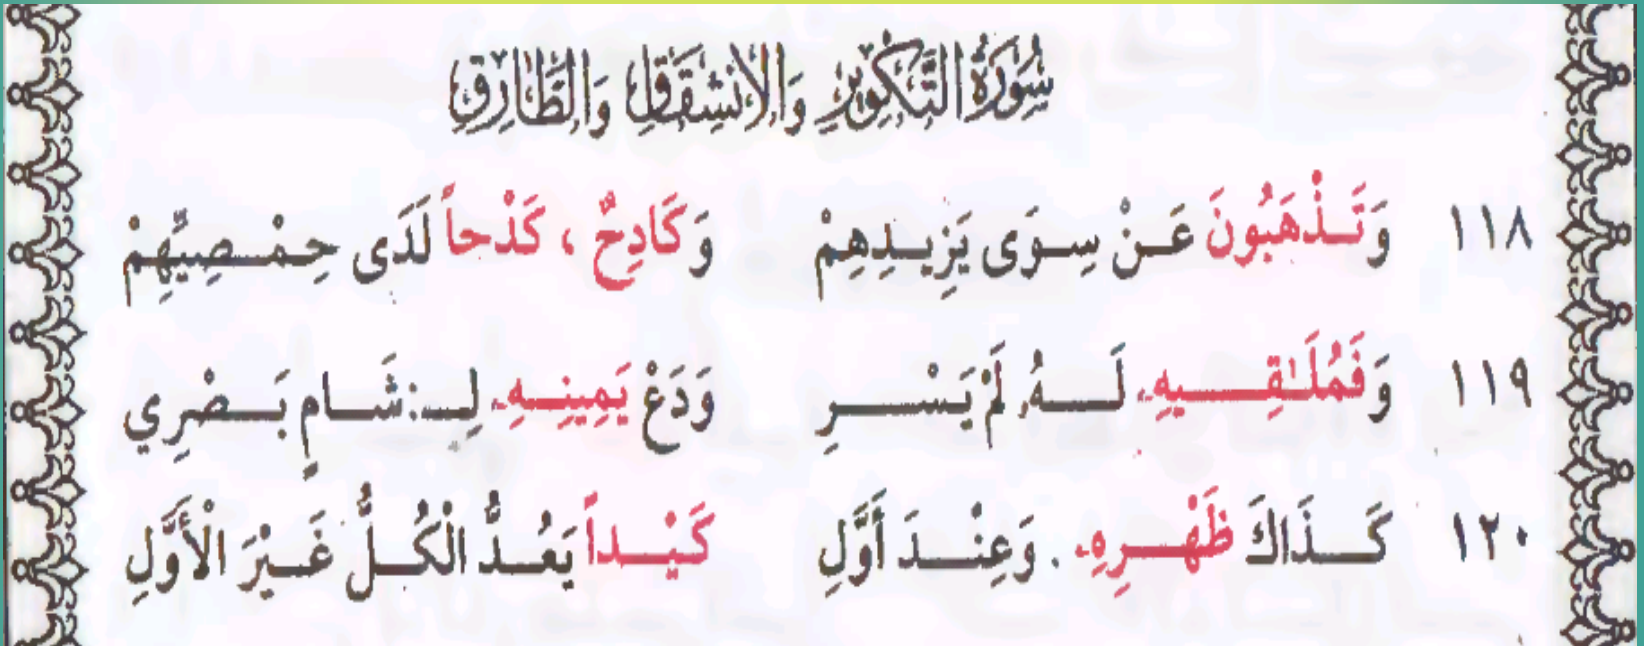 سُورَةُ التَّكْوِيرِ وَالْاِنْشِقَاقِ وَالطَّارِقِ
١١٨ وَتَذْهَبُونَ عَنْ سِوَى يَزِيدِهِمْ وَكَادِحٌ ، كَدْحاً لَدَى حِمْصِيِّهِمْ
١١٩ وَفَمُلَـٰقِيهِ لَهُ لَمْ يَسْرِ وَدَعْ يَمِينِهِ لِـ: شَامٍ بَصْرِي
١٢٠ كَذَاكَ ظَهْرِهِ . وَعِنْدَ أَوَّلِ كَيْداً يَعُدُّ الْكُلُّ غَيْرَ الْأَوَّلِ